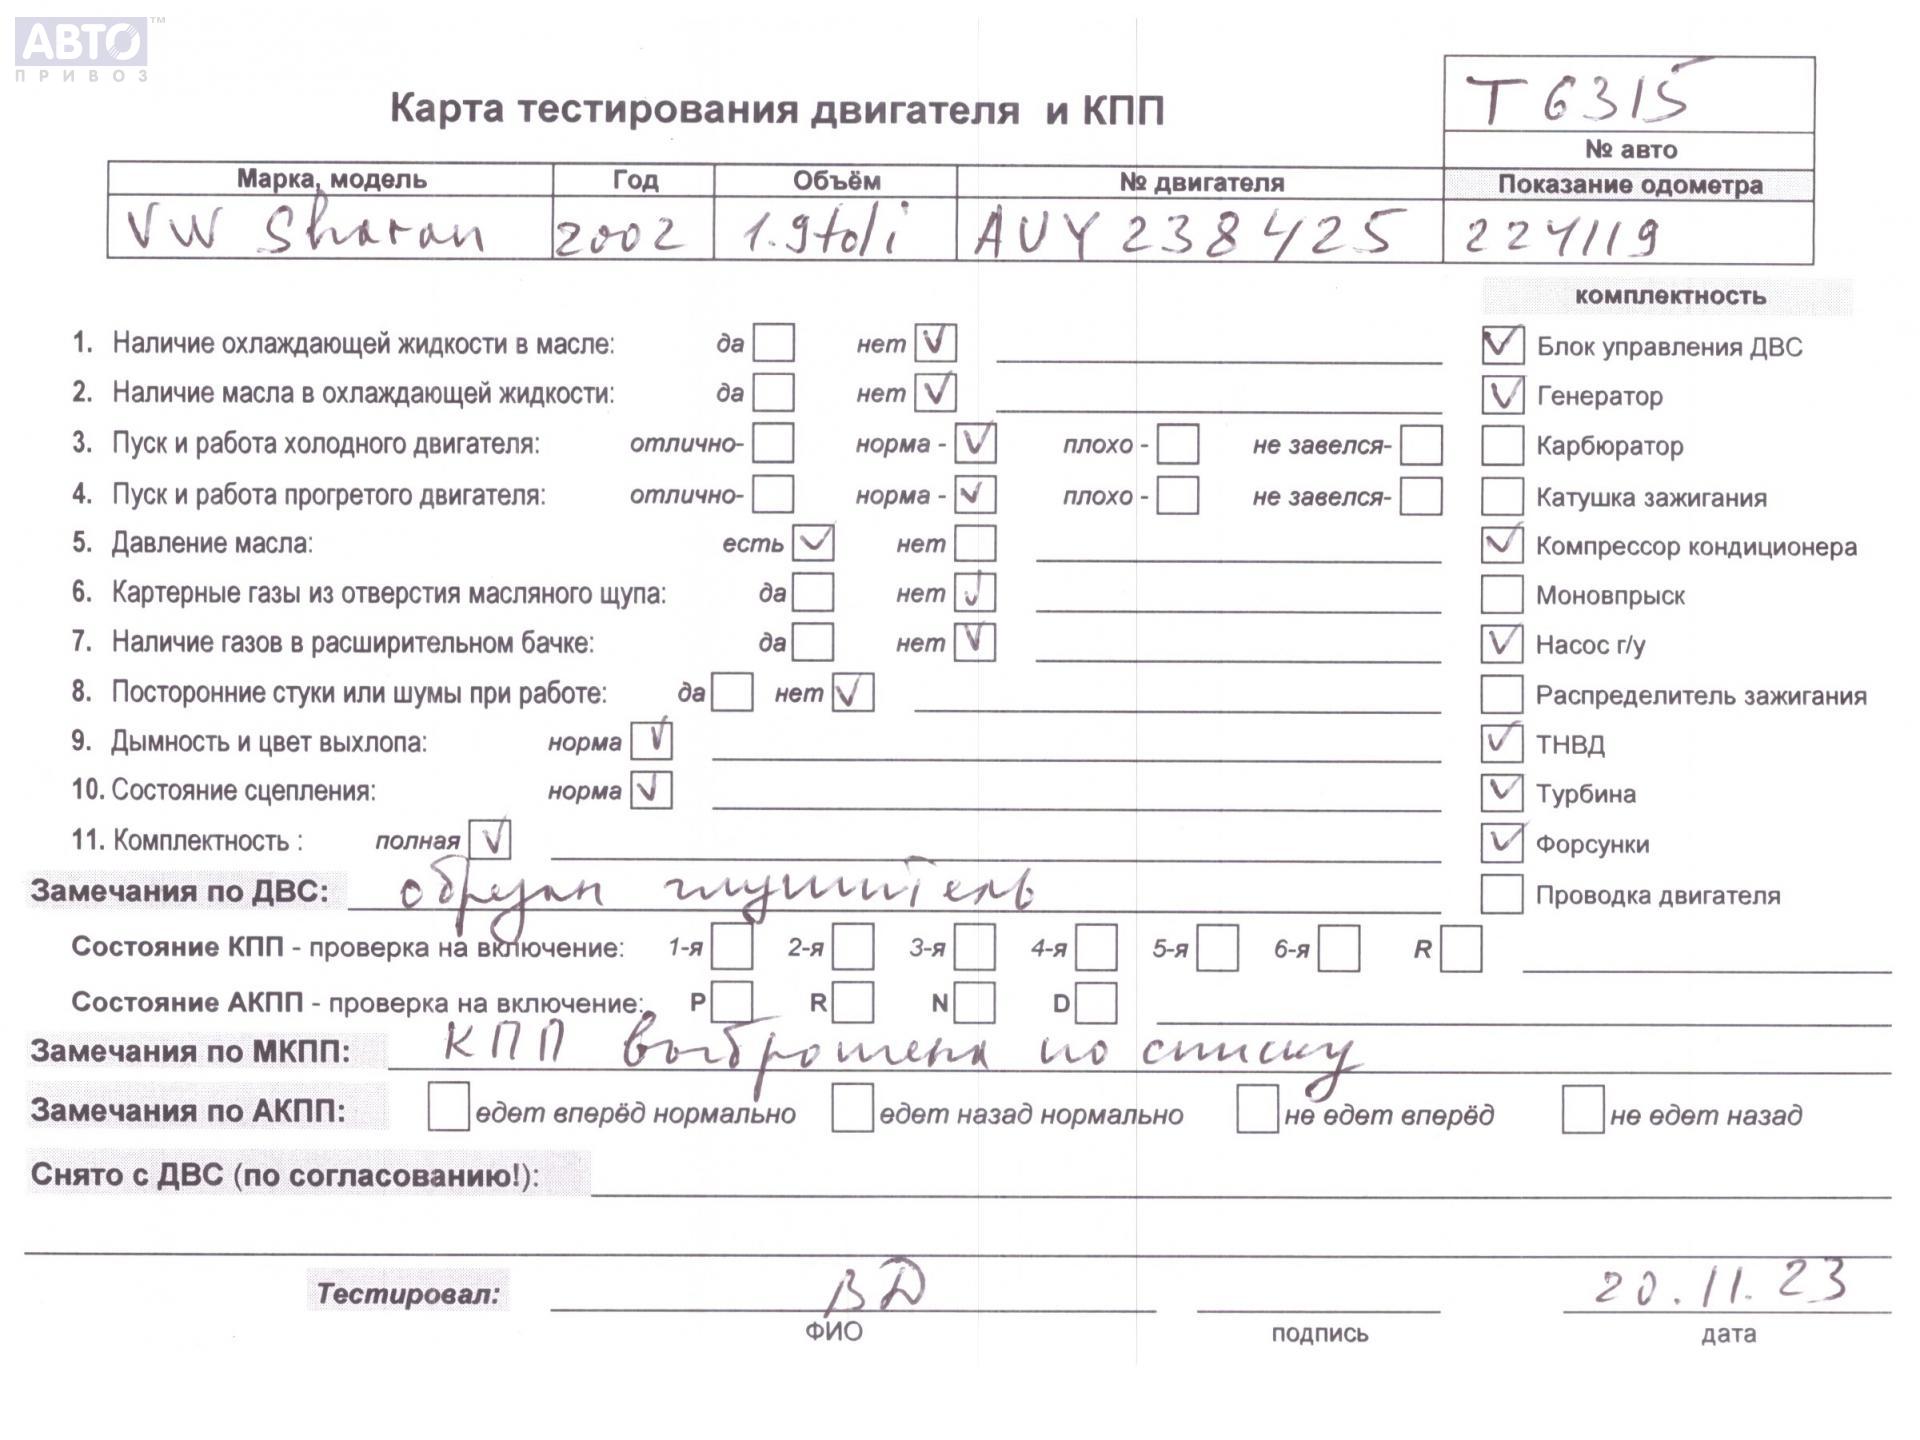 АВТО ТМ
ПРИВОЗ
Карта тестирования двигателя и КПП
T 6315
№ авто
Марка, модель Год Объём № двигателя Показание одометра
VW Sharan 2002 1.9tdi AUY 238425 224119
комплектность
1. Наличие охлаждающей жидкости в масле: да нет ✓
2. Наличие масла в охлаждающей жидкости: да нет ✓
3. Пуск и работа холодного двигателя: отлично- норма - ✓ плохо - не завелся-
4. Пуск и работа прогретого двигателя: отлично- норма - ✓ плохо - не завелся-
5. Давление масла: есть ✓ нет
6. Картерные газы из отверстия масляного щупа: да нет ✓
7. Наличие газов в расширительном бачке: да нет ✓
8. Посторонние стуки или шумы при работе: да нет ✓
9. Дымность и цвет выхлопа: норма ✓
10. Состояние сцепления: норма ✓
11. Комплектность : полная ✓
✓ Блок управления ДВС
✓ Генератор
Карбюратор
Катушка зажигания
✓ Компрессор кондиционера
Моновпрыск
✓ Насос г/у
Распределитель зажигания
✓ ТНВД
✓ Турбина
✓ Форсунки
Проводка двигателя
Замечания по ДВС: обрезан глушитель
Состояние КПП - проверка на включение: 1-я 2-я 3-я 4-я 5-я 6-я R
Состояние АКПП - проверка на включение: P R N D
Замечания по МКПП: КПП выброшена по списку
Замечания по АКПП: едет вперёд нормально едет назад нормально не едет вперёд не едет назад
Снято с ДВС (по согласованию!):
Тестировал: ВД 20.11.23
ФИО подпись дата